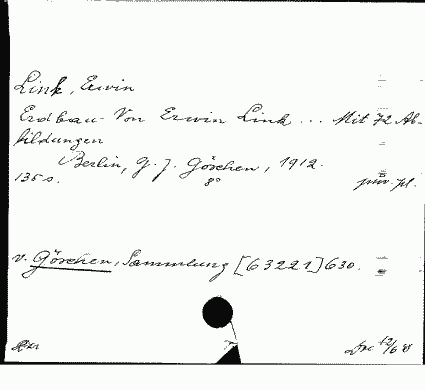 Link, Erwin
Erdbau. Von Erwin Link ... Mit 72 Ab-
bildungen
Berlin, G. J. Göschen, 1912.
135 s. 8°
v. Göschen, Sammlung [63221] 630.